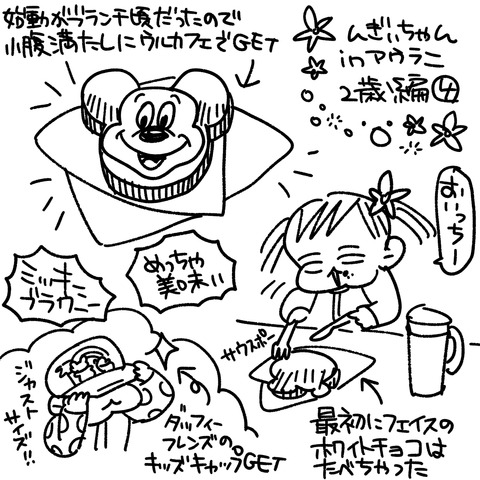 始動がブランチ頃だったので
小腹満たしにウルカフェでGET
んぎぃちゃん
inアウラニ
2歳編④
おいっちー
めっちゃ
美味い
ミッキー
ブラウニー
サウスポー
ジャスト
サイズ!!
ダッフィー
フレンズの。
キッズキャップGET
最初にフェイスの
ホワイトチョコは
たべちゃった